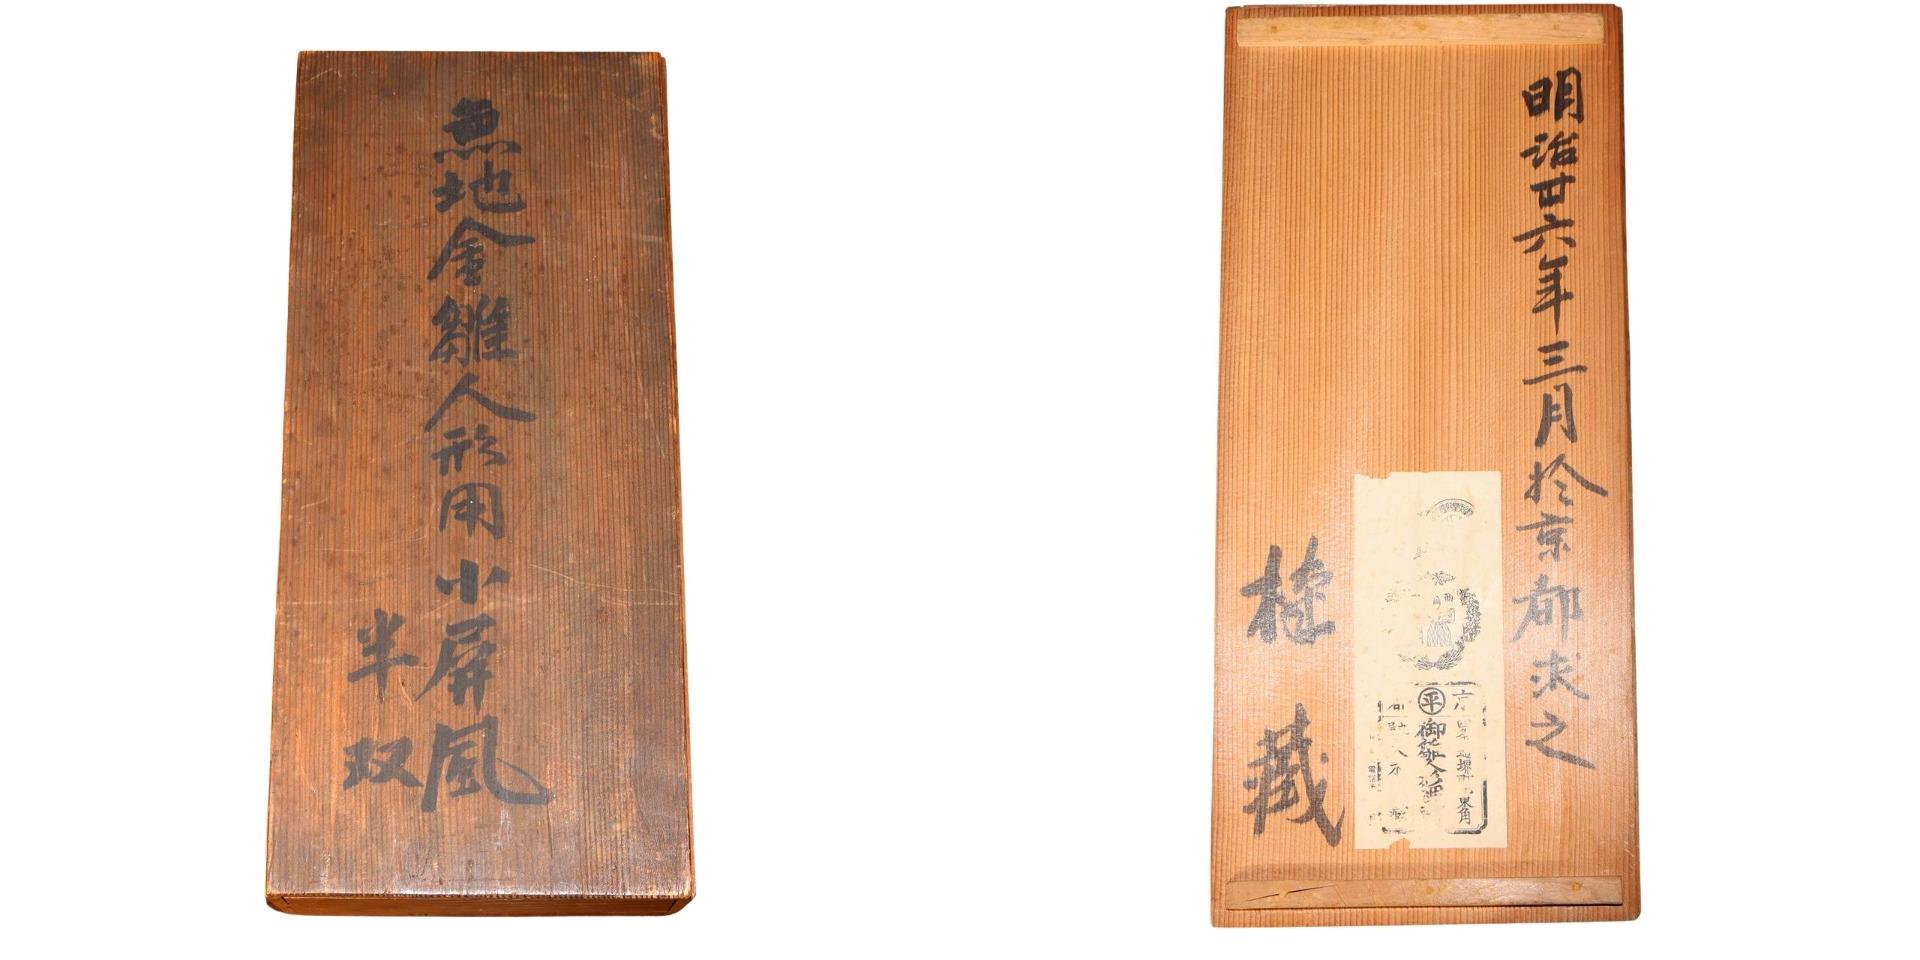 無地金雛人形用小屏風
半双
明治廿六年三月於京都求之
平
御雛人形
東角
藏